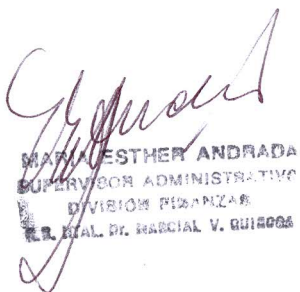 MARIA ESTHER ANDRADA
SUPERVISOR ADMINISTRATIVO
DIVISION FINANZAS
Dr. MARCIAL V. QUIROGA